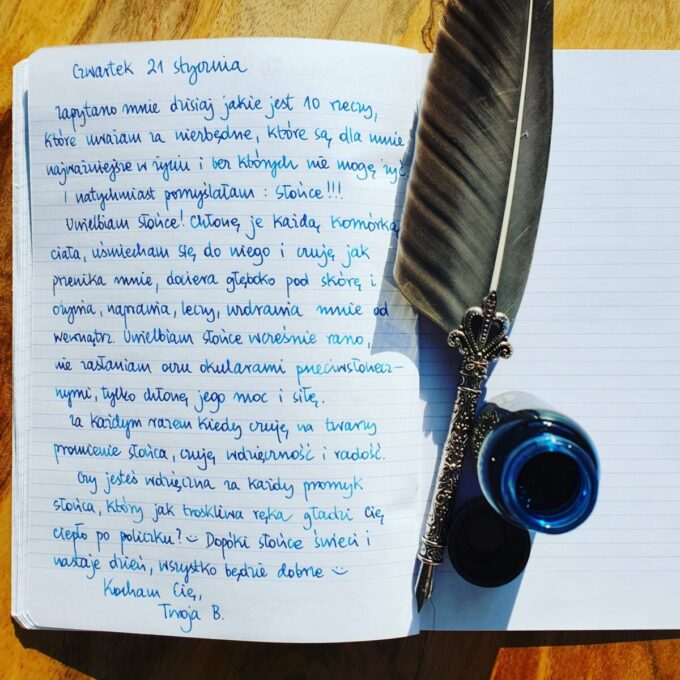 Czwartek 21 stycznia
Zapytano mnie dzisiaj jakie jest 10 rzeczy,
które uważam za niezbędne, które są dla mnie
najważniejsze w życiu i bez których nie mogę żyć.
I natychmiast pomyślałam: słońce!!!
Uwielbiam słońce! Chłonę je każdą komórką
ciała, uśmiecham się do niego i czuję jak
przenika mnie, dociera głęboko pod skórę i
ożywia, naprawia, leczy, uzdrawia mnie od
wewnątrz. Uwielbiam słońce wcześnie rano,
nie zasłaniam oczu okularami przeciwsłonecz-
nymi, tylko chłonę jego moc i siłę.
Za każdym razem kiedy czuję na twarzy
promienie słońca, czuję wdzięczność i radość.
Czy jesteś wdzięczna za każdy promyk
słońca, który jak troskliwa ręka gładzi Cię
ciepło po policzku? Dopóki słońce świeci i
nastaje dzień, wszystko będzie dobrze
Kocham Cię,
Twoja B.